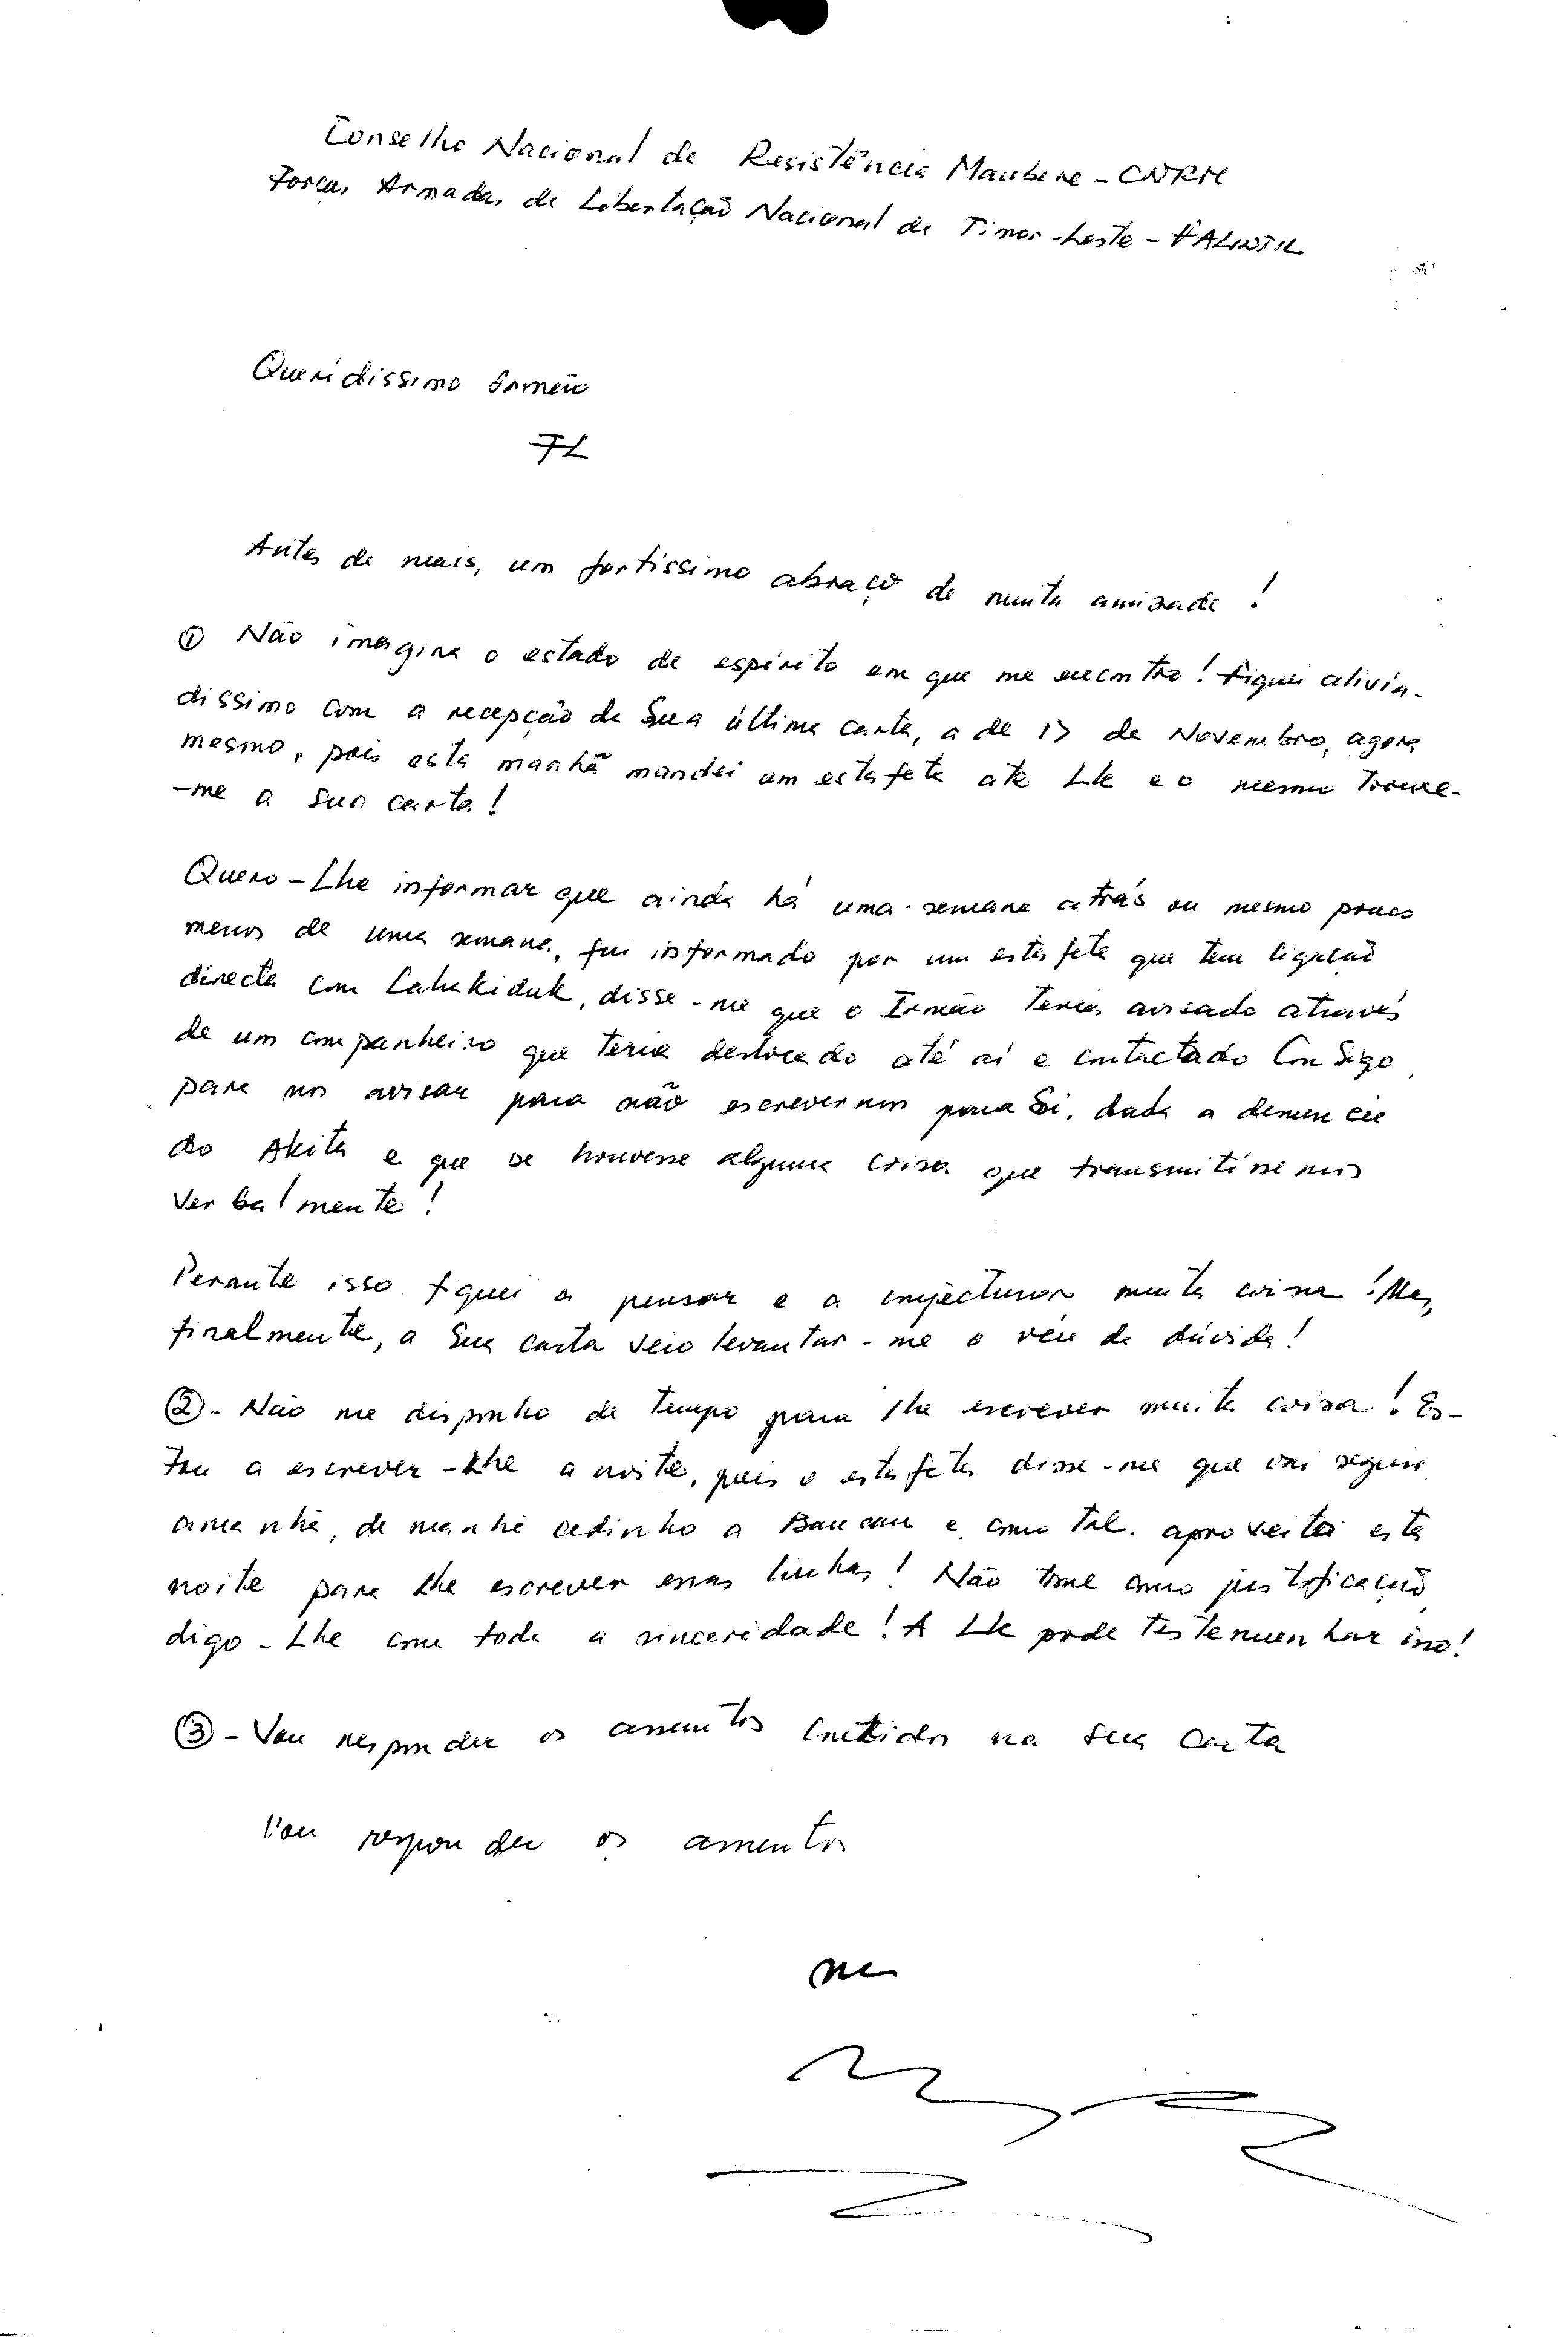 Conselho Nacional de Resistência Maubere - CNRM
Forças Armadas de Libertação Nacional de Timor-Leste - FALINTIL
Queridissimo Irmão
FL
Antes de mais, um fortíssimo abraço de muita amizade !
① Não imagina o estado de espírito em que me encontro ! Fiquei alivia-
dissimo com a recepção da Sua última carta, a de 17 de Novembro, agora
mesmo, pois esta manhã mandei um estafeta até Lk e o mesmo trouxe-
-me a Sua carta !
Quero-Lhe informar que ainda há uma semana atrás ou mesmo pouco
menos de uma semana, fui informado por um estafeta que tem ligação
directa com Lahakiduk, disse-me que o Irmão teria avisado através
de um companheiro que teria deslocado até aí e contactado Consigo
para nos avisar para não escrevermos para Si, dada a denuncia
do Akita e que se houvesse alguma coisa que transmitíssemos
verbalmente !
Perante isso fiquei a pensar e a conjecturar muita coisa ! Mas,
finalmente, a Sua carta veio levantar-me o véu da dúvida !
② - Não me disponho de tempo para lhe escrever muita coisa ! Es-
tou a escrever-Lhe a noite, pois o estafeta disse-me que vai seguir
amanhã, de manhã cedinho a Baucau e como tal. aproveitei esta
noite para Lhe escrever essas linhas ! Não tome como justificação,
digo-Lhe com toda a sinceridade ! A Lk pode testemunhar isso !
③ - Vou responder os assuntos contidos na Sua carta
Vou responder os assuntos